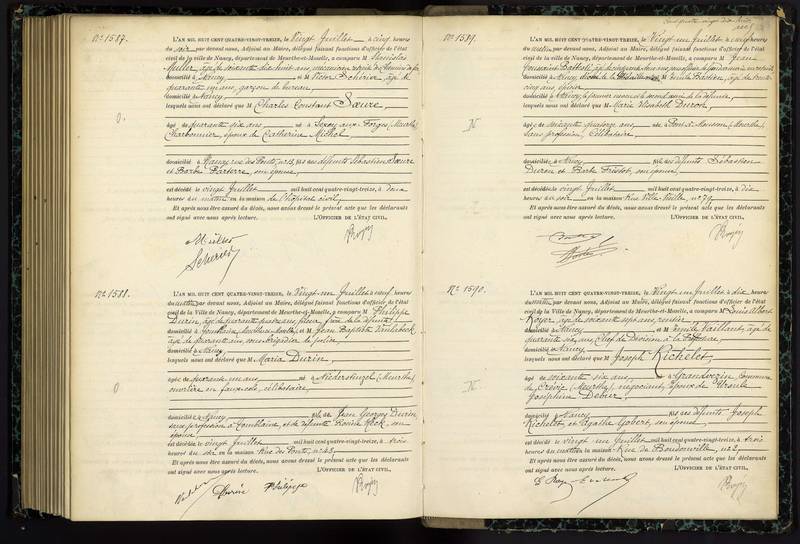 N° 1587.
L'AN MIL HUIT CENT QUATRE-VINGT-TREIZE, le Vingt Juillet à cinq heures
du soir par devant nous, Adjoint au Maire, délégué faisant fonctions d'officier de l'état
civil de la Ville de Nancy, département de Meurthe-et-Moselle, a comparu M Stanislas
Muller, âgé de soixante dix huit ans,
domicilié à Nancy et M Victor Scherier âgé de
quarante ans, garçon de bureau,
domicilié à Nancy
lesquels nous ont déclaré que M Charles Constant Sœure
âgé de quarante six ans né à Sexey aux Forges (Meurthe)
Charbonnier, époux de Catherine Michel
domicilié à Nancy, rue des Ponts, n° 13, fils des défunts Sébastien Sœure
et Barbe Parterre, son épouse
est décédé le vingt Juillet mil huit cent quatre-vingt-treize, à deux
heures du matin en la maison de l'hôpital civil,
Et après nous être assuré du décès, nous avons dressé le présent acte que les déclarants
ont signé avec nous après lecture. L'OFFICIER DE L'ÉTAT CIVIL,
Müller
Scherier
N° 1588.
L'AN MIL HUIT CENT QUATRE-VINGT-TREIZE, le Vingt-un Juillet à neuf heures
du matin par devant nous, Adjoint au Maire, délégué faisant fonctions d'officier de l'état
civil de la Ville de Nancy, département de Meurthe-et-Moselle, a comparu M Philippe
Durin, âgé de quarante quatre ans, frère de la défunte
domicilié à Joublaine, et M Jean Baptiste
âgé de quarante ans, sous brigadier de police
domicilié à Nancy,
lesquels nous ont déclaré que M Maria Durin
âgée de quarante un ans née à Niederstinzel (Meurthe)
ouvrière en faux-cols, célibataire
domiciliée à Nancy fille de Jean Georges Durin
sans profession à Joublaine, et de défunte Rosine Keck, son
épouse
est décédée le vingt Juillet mil huit cent quatre-vingt-treize, à trois
heures du soir en la maison Rue des Ponts, n° 43
Et après nous être assuré du décès, nous avons dressé le présent acte que les déclarants
ont signé avec nous après lecture. L'OFFICIER DE L'ÉTAT CIVIL,
Philippe
N° 1589.
L'AN MIL HUIT CENT QUATRE-VINGT-TREIZE, le Vingt-un Juillet à neuf heures
du matin par devant nous, Adjoint au Maire, délégué faisant fonctions d'officier de l'état
civil de la Ville de Nancy, département de Meurthe-et-Moselle, a comparu M Jean
domicilié à Nancy, et M Emile Bastien, âgé de trente
cinq ans, épicier
domicilié à Nancy, le premier cousin et le second ami de la défunte,
lesquels nous ont déclaré que M Marie Elisabeth Duron
âgée de soixante quatorze ans, née à Pont-à-Mousson (Meurthe)
sans profession, Célibataire
domiciliée à Nancy fille des défunts Sébastien
Duron et Barbe Fristot, son épouse
est décédée le vingt Juillet mil huit cent quatre-vingt-treize, à dix
heures du soir en la maison Rue Ville-Vieille, n° 79
Et après nous être assuré du décès, nous avons dressé le présent acte que les déclarants
ont signé avec nous après lecture. L'OFFICIER DE L'ÉTAT CIVIL,
N° 1590.
L'AN MIL HUIT CENT QUATRE-VINGT-TREIZE, le Vingt un Juillet à dix heures
du matin par devant nous, Adjoint au Maire, délégué faisant fonctions d'officier de l'état
civil de la Ville de Nancy, département de Meurthe-et-Moselle, a comparu M Louis Albert
Royer, âgé de soixante sept ans, rentier
domicilié à Nancy et M Emile Vaillant, âgé de
quarante six ans, Chef de Division à la Préfecture
domicilié à Nancy
lesquels nous ont déclaré que M Joseph Richelet
âgé de soixante six ans né à Grandvezin, Commune
de Crévic (Meurthe), négociant, époux de Ursule
Joséphine Debur
domicilié à Nancy fils des défunts Joseph
Richelet et Agathe Gobert, son épouse
est décédé le vingt un Juillet mil huit cent quatre-vingt-treize, à trois
heures du matin en la maison Rue de Boudonville, n° 2
Et après nous être assuré du décès, nous avons dressé le présent acte que les déclarants
ont signé avec nous après lecture. L'OFFICIER DE L'ÉTAT CIVIL,